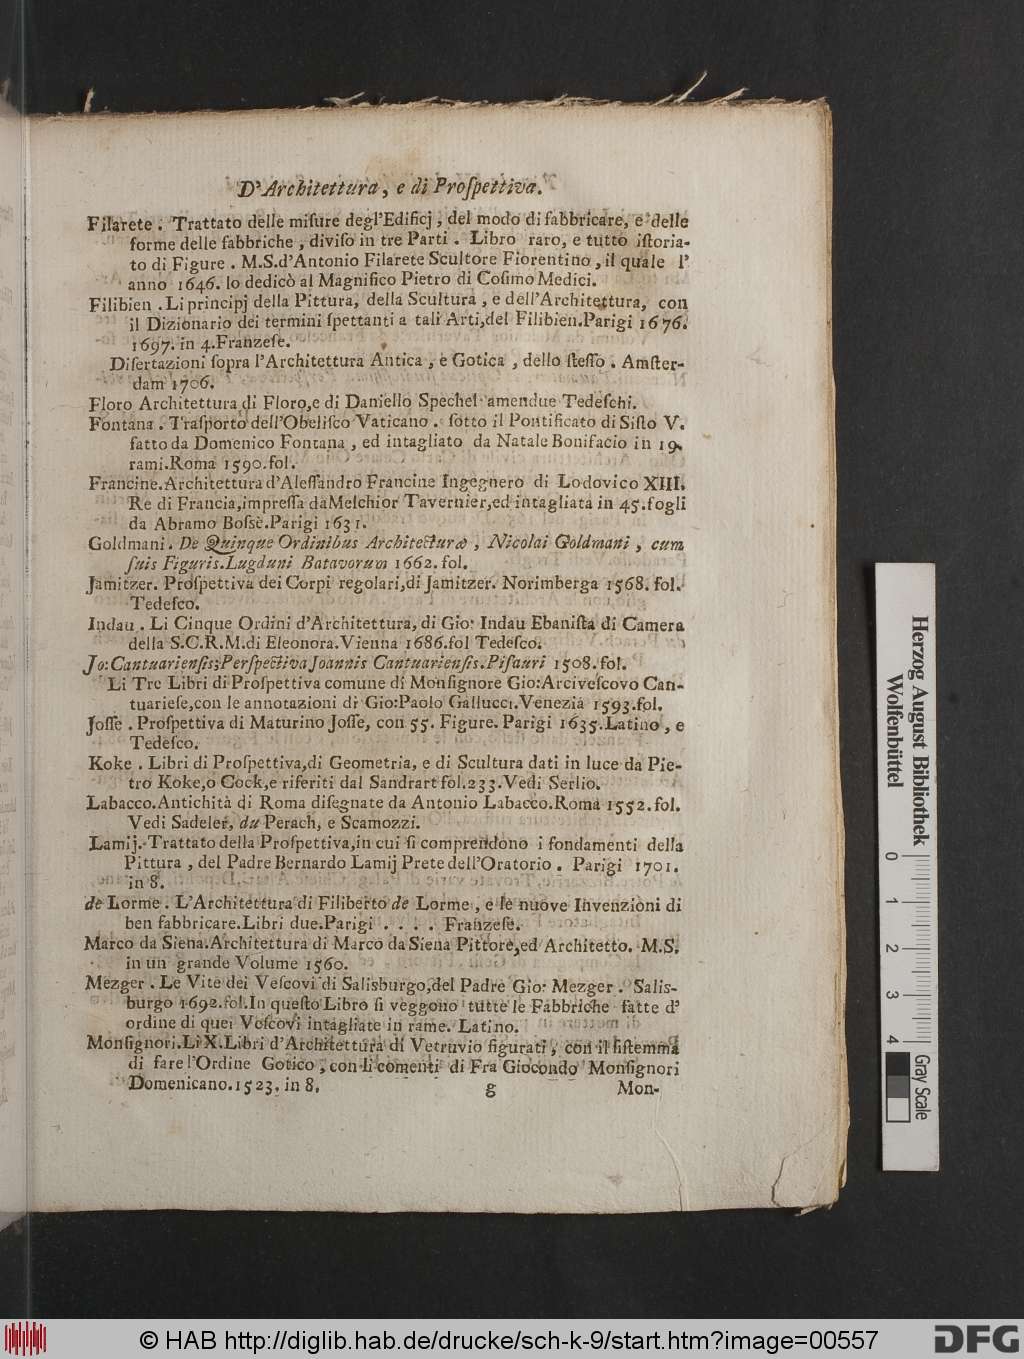 D'Architettura, e di Proſpettiva.
Filarete. Trattato delle miſure degl'Edificj, del modo di fabbricare, e delle
forme delle fabbriche, diviſo in tre Parti. Libro raro, e tutto iſtoria-
to di Figure. M.S.d'Antonio Filarete Scultore Fiorentino, il quale l'
anno 1646. lo dedicò al Magnifico Pietro di Coſimo Medici.
Filibien.Li principj della Pittura, della Scultura, e dell'Architettura, con
il Dizionario dei termini ſpettanti a tali Arti,del Filibien.Parigi 1676.
1697. in 4.Franzeſe.
Diſertazioni ſopra l'Architettura Antica, e Gotica, dello ſteſſo. Amſter-
dam 1706.
Floro Architettura di Floro,e di Daniello Spechel amendue Tedeſchi.
Fontana. Traſporto dell'Obeliſco Vaticano. ſotto il Pontificato di Siſto V.
fatto da Domenico Fontana, ed intagliato da Natale Bonifacio in 19.
rami.Roma 1590.fol.
Francine.Architettura d'Aleſſandro Francine Ingegnero di Lodovico XIII.
Re di Francia,impreſſa daMelchior Tavernier,ed intagliata in 45.fogli
da Abramo Boſsè.Parigi 1631.
Goldmani. De Quinque Ordinibus Architecturæ, Nicolai Goldmani, cum
ſuis Figuris.Lugduni Batavorum 1662. fol.
Jamitzer. Proſpettiva dei Corpi regolari,di Jamitzer. Norimberga 1568. fol.
Tedeſco.
Indau. Li Cinque Ordini d'Architettura, di Gio: Indau Ebaniſta di Camera
della S.C.R.M.di Eleonora.Vienna 1686.fol Tedeſco.
Jo:Cantuarienſis;Perſpectiva Joannis Cantuarienſis.Piſauri 1508.fol.
Li Tre Libri di Proſpettiva comune di Monſignore Gio:Arciveſcovo Can-
tuarieſe,con le annotazioni di Gio:Paolo Gallucci.Venezia 1593.fol.
Joſſe. Proſpettiva di Maturino Joſſe, con 55. Figure. Parigi 1635.Latino, e
Tedeſco.
Koke. Libri di Proſpettiva,di Geometria, e di Scultura dati in luce da Pie-
tro Koke,o Cock,e riferiti dal Sandrart fol.233.Vedi Serlio.
Labacco.Antichità di Roma diſegnate da Antonio Labacco.Roma 1552.fol.
Vedi Sadeler, du Perach, e Scamozzi.
Lamij. Trattato della Proſpettiva,in cui ſi comprendono i fondamenti della
Pittura, del Padre Bernardo Lamij Prete dell'Oratorio. Parigi 1701.
in 8.
de Lorme. L'Architettura di Filiberto de Lorme, e le nuove Invenzioni di
ben fabbricare.Libri due.Parigi . . . . Franzeſe.
Marco da Siena.Architettura di Marco da Siena Pittore,ed Architetto. M.S.
in un grande Volume 1560.
Mezger. Le Vite dei Veſcovi di Salisburgo,del Padre Gio: Mezger. Salis-
burgo 1692.fol.In queſto Libro ſi veggono tutte le Fabbriche fatte d'
ordine di quei Veſcovi intagliate in rame. Latino.
Monſignori.Li X.Libri d'Architettura di Vetruvio figurati, con il ſiſtemma
di fare l'Ordine Gotico, con li comenti di Fra Giocondo Monſignori
Domenicano.1523. in 8.
g Mon-
Herzog August Bibliothek
Wolfenbüttel
0 1 2 3 4
Gray Scale
© HAB http://diglib.hab.de/drucke/sch-k-9/start.htm?image=00557
DFG